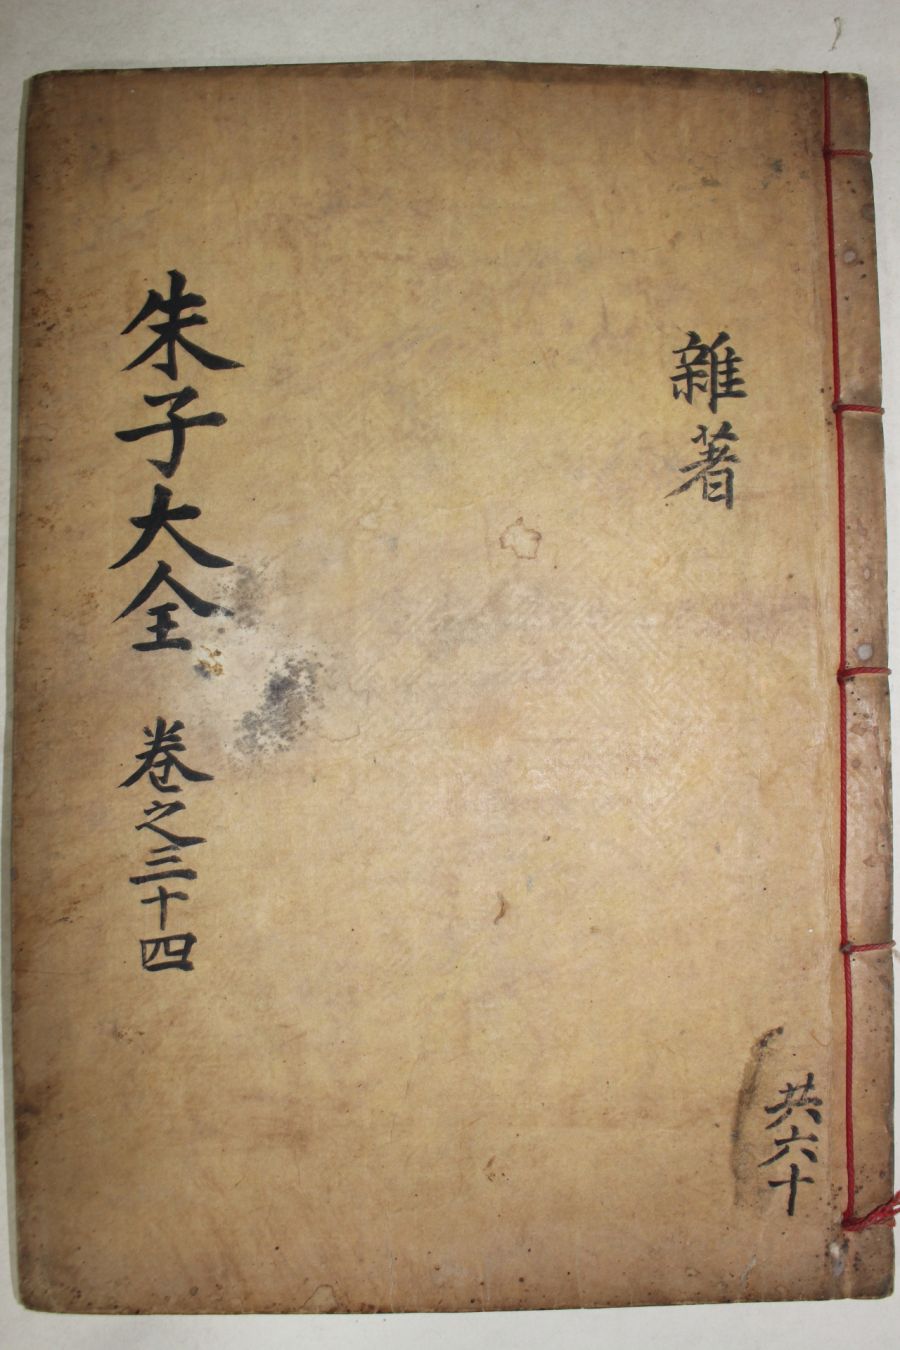 雜著
共六十
朱子大全 卷之三十四